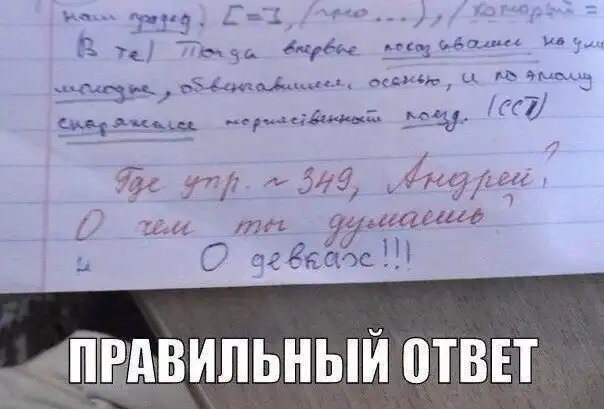 наш прадед) [=], (что...), (который =
(В те) Тогда впервые показывались на ули
молодые, обвенчавшиеся осенью, и поэтому
снаряжался торжественный поезд. (ССП)
Где упр. ~ 349, Андрей?
О чем ты думаешь?
О девках!!!
ПРАВИЛЬНЫЙ ОТВЕТ